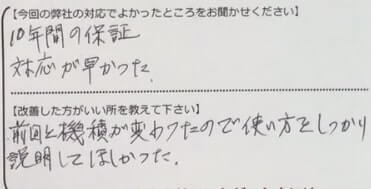 【今回の弊社の対応でよかったところをお聞かせください】
10年間の保証
対応が早かった.
【改善した方がいい所を教えて下さい】
前回と機積が変わったので使い方をしっかり
説明してほしかった.